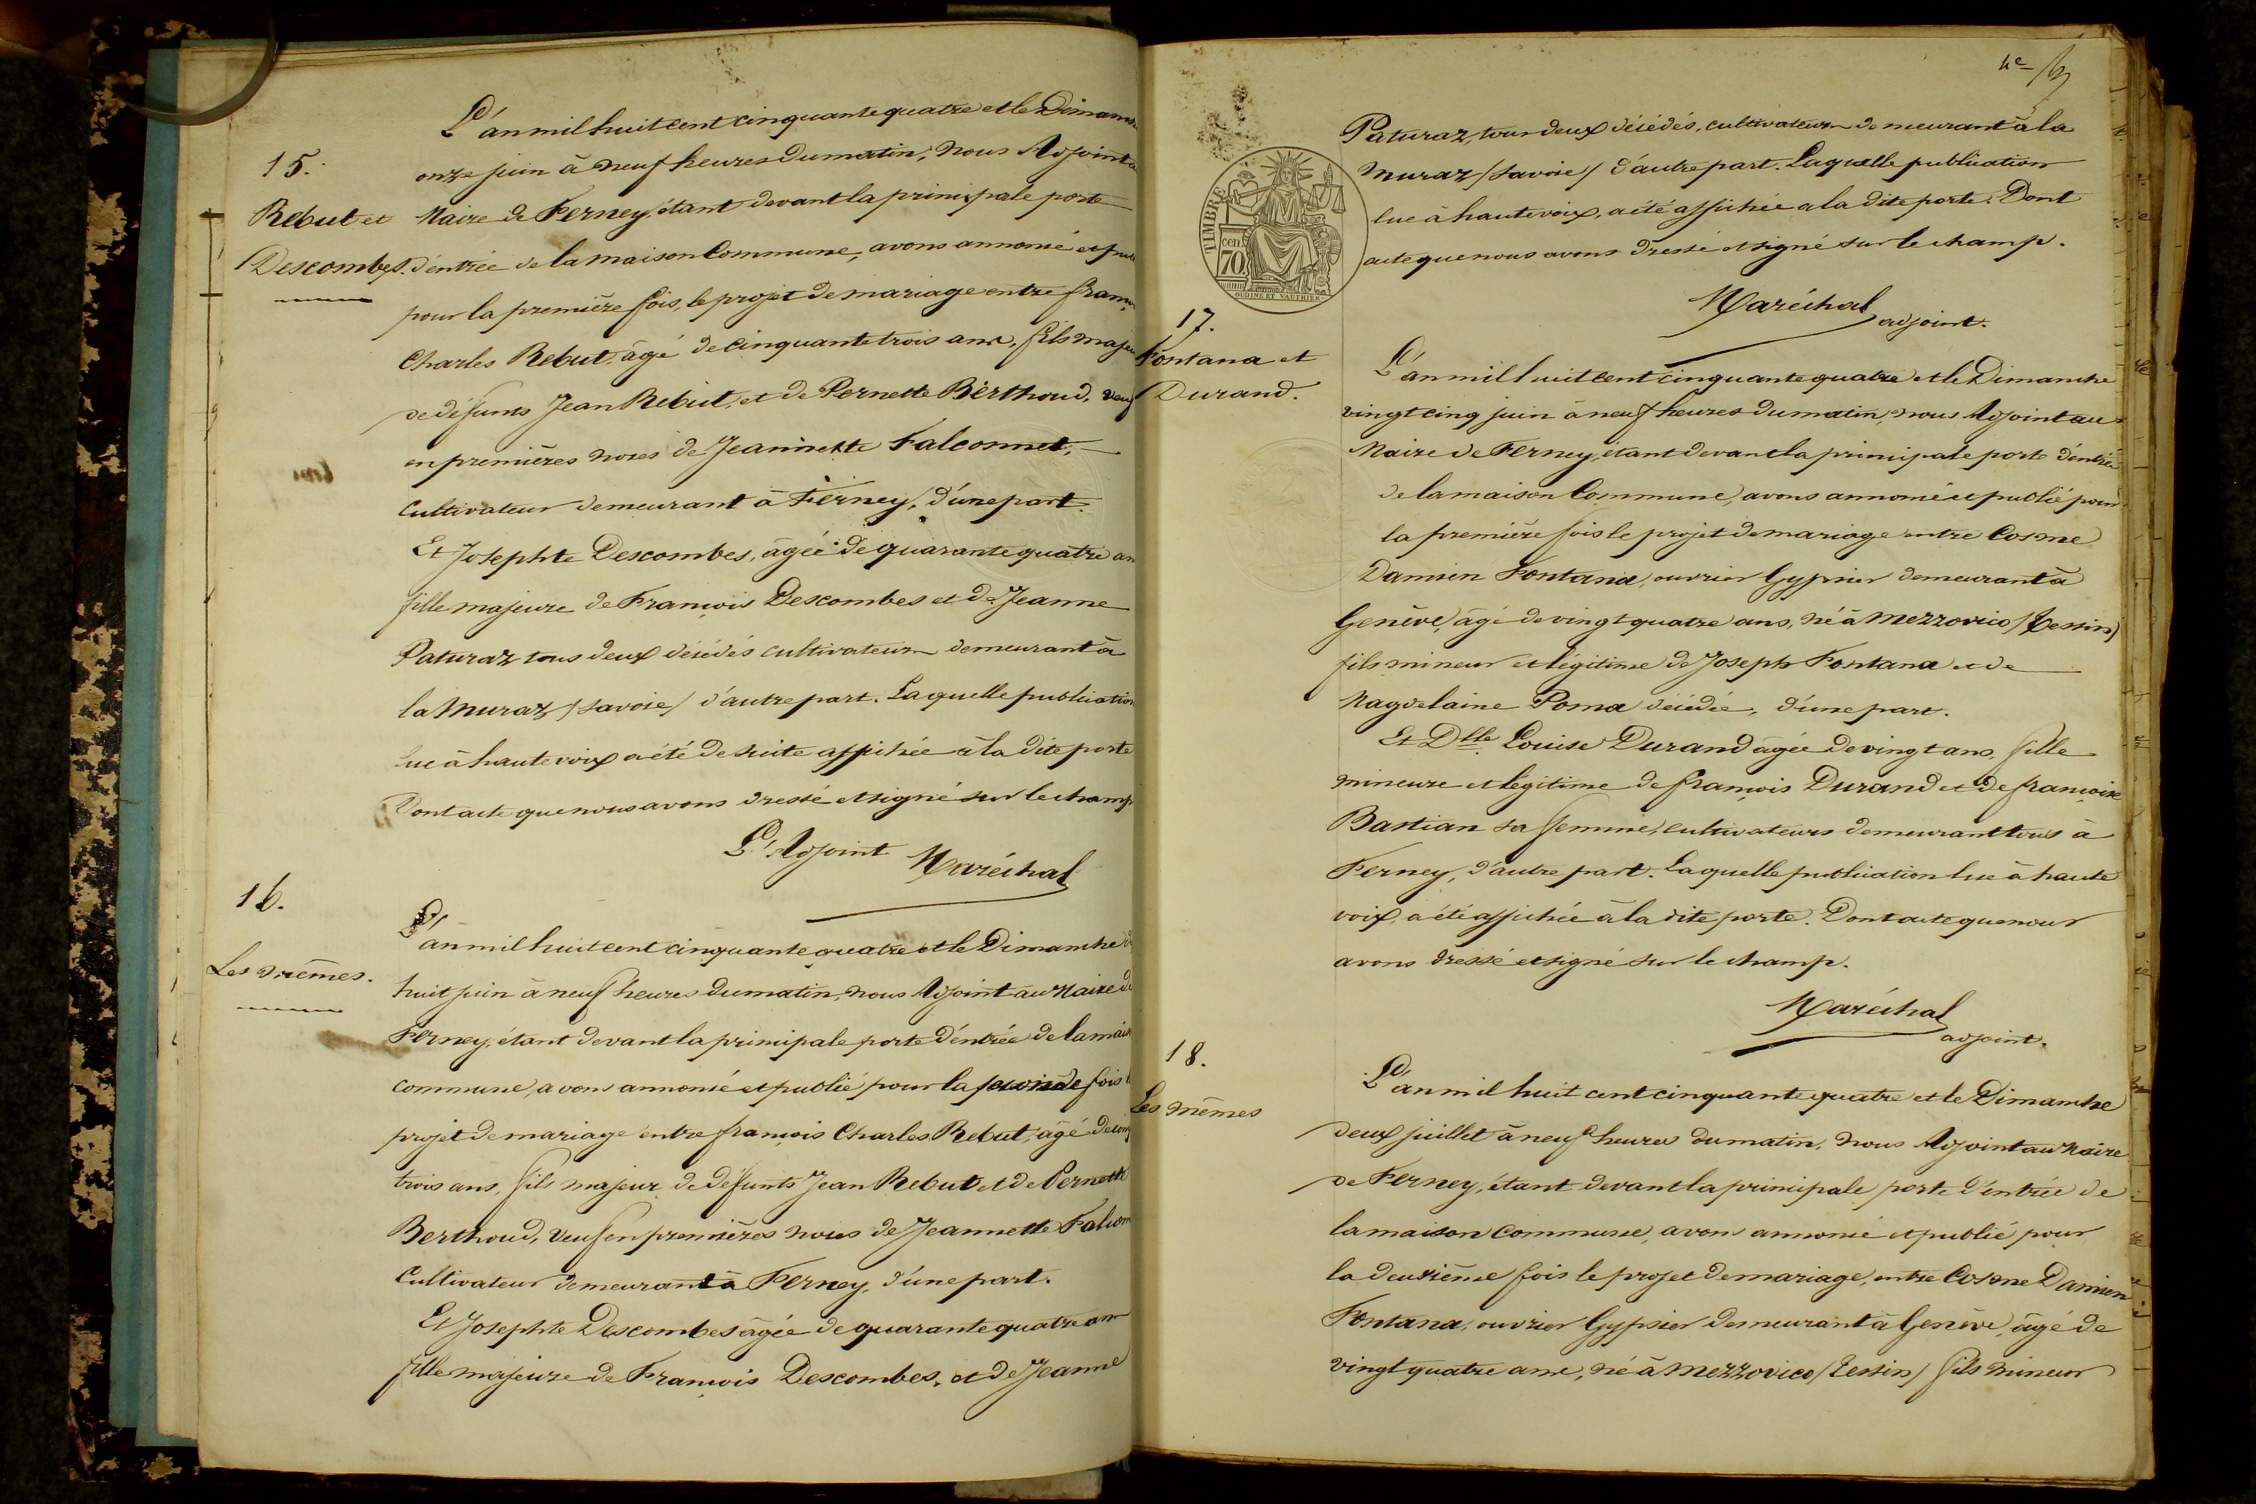 15.
Rebut et
Descombes.
L'an mil huit cent cinquante quatre et le Dimanche
onze juin à neuf heures du matin, nous Adjoint au
Maire de Ferney, étant devant la principale porte
d'entrée de la maison Commune, avons annoncé et publié
pour la première fois, le projet de mariage entre françois
Charles Rebut, âgé de cinquante trois ans, fils majeur
de défunts Jean Rebut, et de Pernette Berthoud, veuf
en premières noces de Jeannette Falconnet,
Cultivateur demeurant à Ferney, d'une part.
Et Josephte Descombes, âgée de quarante quatre ans
fille majeure de François Descombes et de Jeanne
Paturaz tous deux décédés cultivateurs demeurant à
la Muraz / Savoie / d'autre part. Laquelle publication
lue à haute voix a été de suite affichée à la dite porte
Dont acte que nous avons dressé et signé sur le champ
L'Adjoint Maréchal
16.
Les mêmes.
L'an mil huit cent cinquante quatre et le Dimanche
huit juin à neuf heures du matin, nous Adjoint au Maire de
Ferney, étant devant la principale porte d'entrée de la maison
commune, avons annoncé et publié pour la seconde fois le
projet de mariage entre françois Charles Rebut, âgé de cinq
trois ans, fils majeur de défunts Jean Rebut et de Pernette
Berthoud, veuf en premières noces de Jeannette Falconn
Cultivateur demeurant à Ferney, d'une part.
Et Josephte Descombes âgée de quarante quatre ans
fille majeure de François Descombes, et de Jeanne
4e
Paturaz, tous deux décédés, cultivateurs demeurant à la
Muraz / Savoie / d'autre part. Laquelle publication
lue à haute voix, a été affichée a la dite porte. Dont
acte que nous avons dressé et signé sur le champ.
Maréchal
adjoint.
TIMBRE
cen.
70
OUDINE ET VAUTHIER
17.
Fontana et
Durand.
L'an mil huit cent cinquante quatre et le Dimanche
vingt cinq juin à neuf heures du matin, nous Adjoint au
Maire de Ferney, étant devant la principale porte d'entrée
de la maison Commune, avons annoncé et publié pour
la première fois le projet de mariage entre Cosme
Damien Fontana, ouvrier Gypsier demeurant à
Genève, âgé de vingt quatre ans, né à Mezzovico / Tessin /
fils mineur et légitime de Joseph Fontana et de
Magdelaine Poma décédée, d'une part.
Et Dlle Louise Durand âgée de vingt ans, fille
mineure et légitime de françois Durand et de françoise
Bastian sa femme, cultivateurs demeurant tous à
Ferney, d'autre part. Laquelle publication lue à haute
voix, a été affichée à la dite porte. Dont acte que nous
avons dressé et signé sur le champ.
Maréchal
adjoint.
18.
Les mêmes
L'an mil huit cent cinquante quatre et le Dimanche
deux juillet à neuf heures du matin, nous Adjoint au Maire
de Ferney, étant devant la principale porte d'entrée de
la maison commune, avons annoncé et publié pour
la deuxième fois le projet de mariage, entre Cosme Damien
Fontana, ouvrier Gypsier demeurant à Genève, âgé de
vingt quatre ans, né à Mezzovico / Tessin / fils mineur